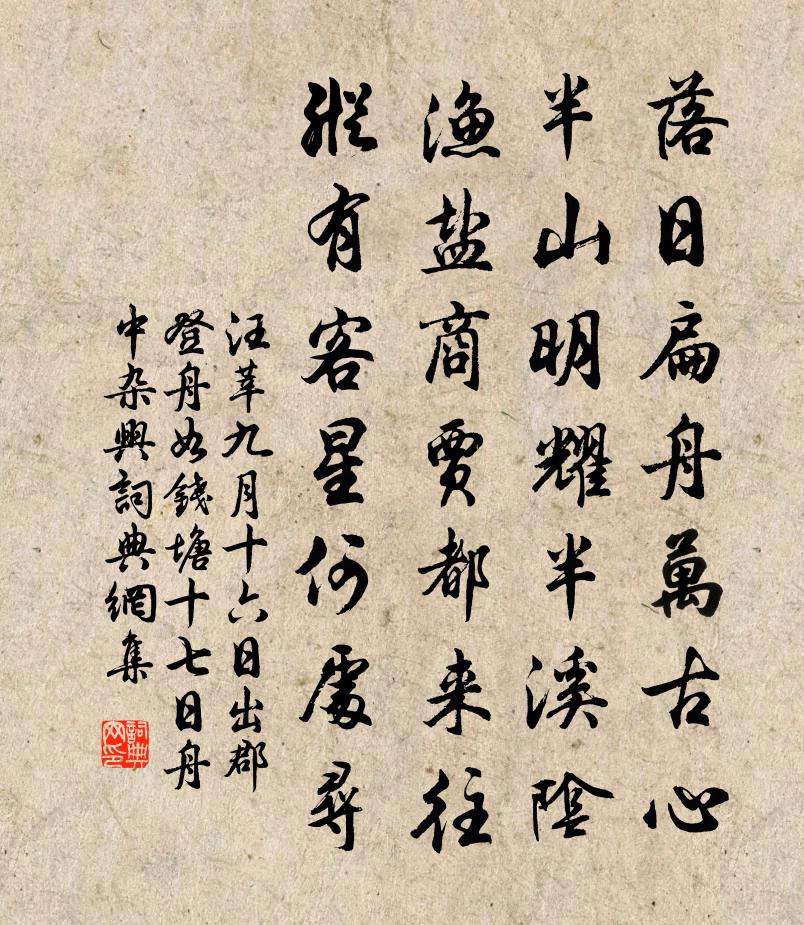 落日扁舟萬古心
半山明耀半溪陰
漁盐商賈都来往
縱有客星何處尋
汪莘九月十六日出郡
登舟如錢塘十七日舟
中杂興詞典網集
詞典
网印